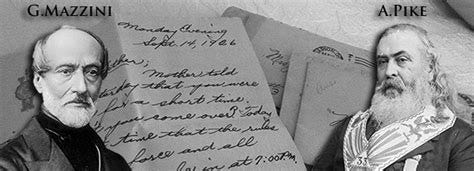 G.MAZZINI
A.PIKE
Monday Evening
Sept. 14, 1926
Mother told
that you were
for a short time.
you some over? Today
time that the rules
force and all
in at 7:00 P.M.
33